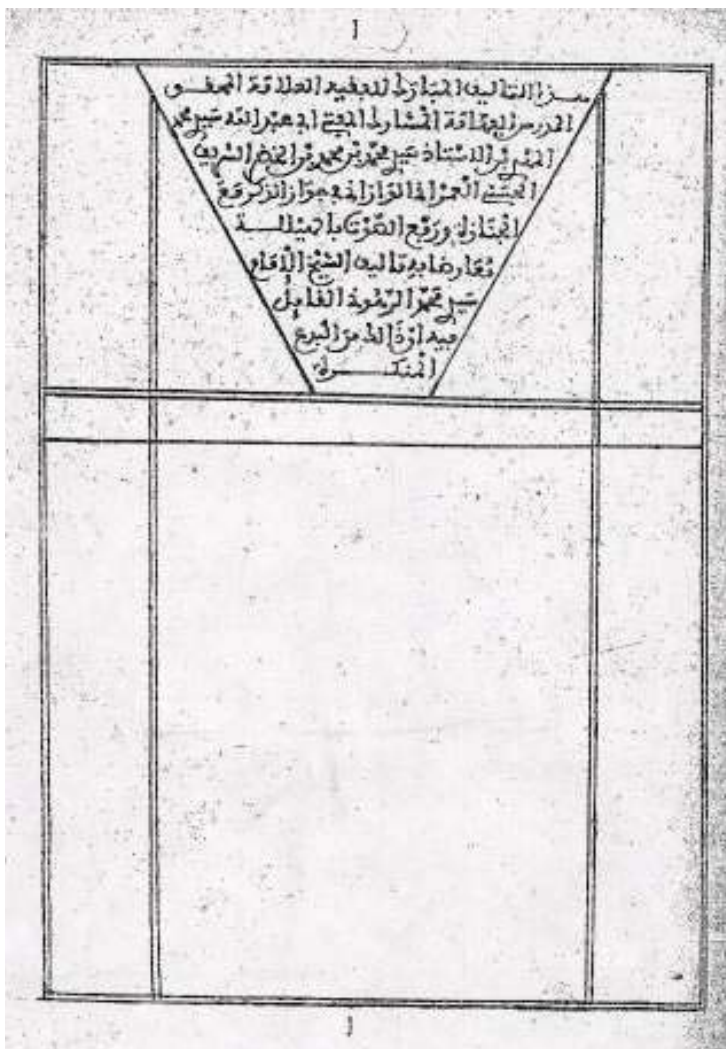 1
هذا التأليف المبارك للفقيه العلامة المحقق
المدرس الفهامة المشارك المفتي أبي عبد الله سيدي محمد
ابن الأستاذ سيدي محمد بن محمد بن الخضر الشريف
الحسني العمراني في جواز الذكر مع
الجنازة ورفع الصوت بالهيللة
معارضا به تأليف الشيخ الإمام
سيدي محمد الرهوني القائل
فيه أن ذلك من البدع
المنكرة
1